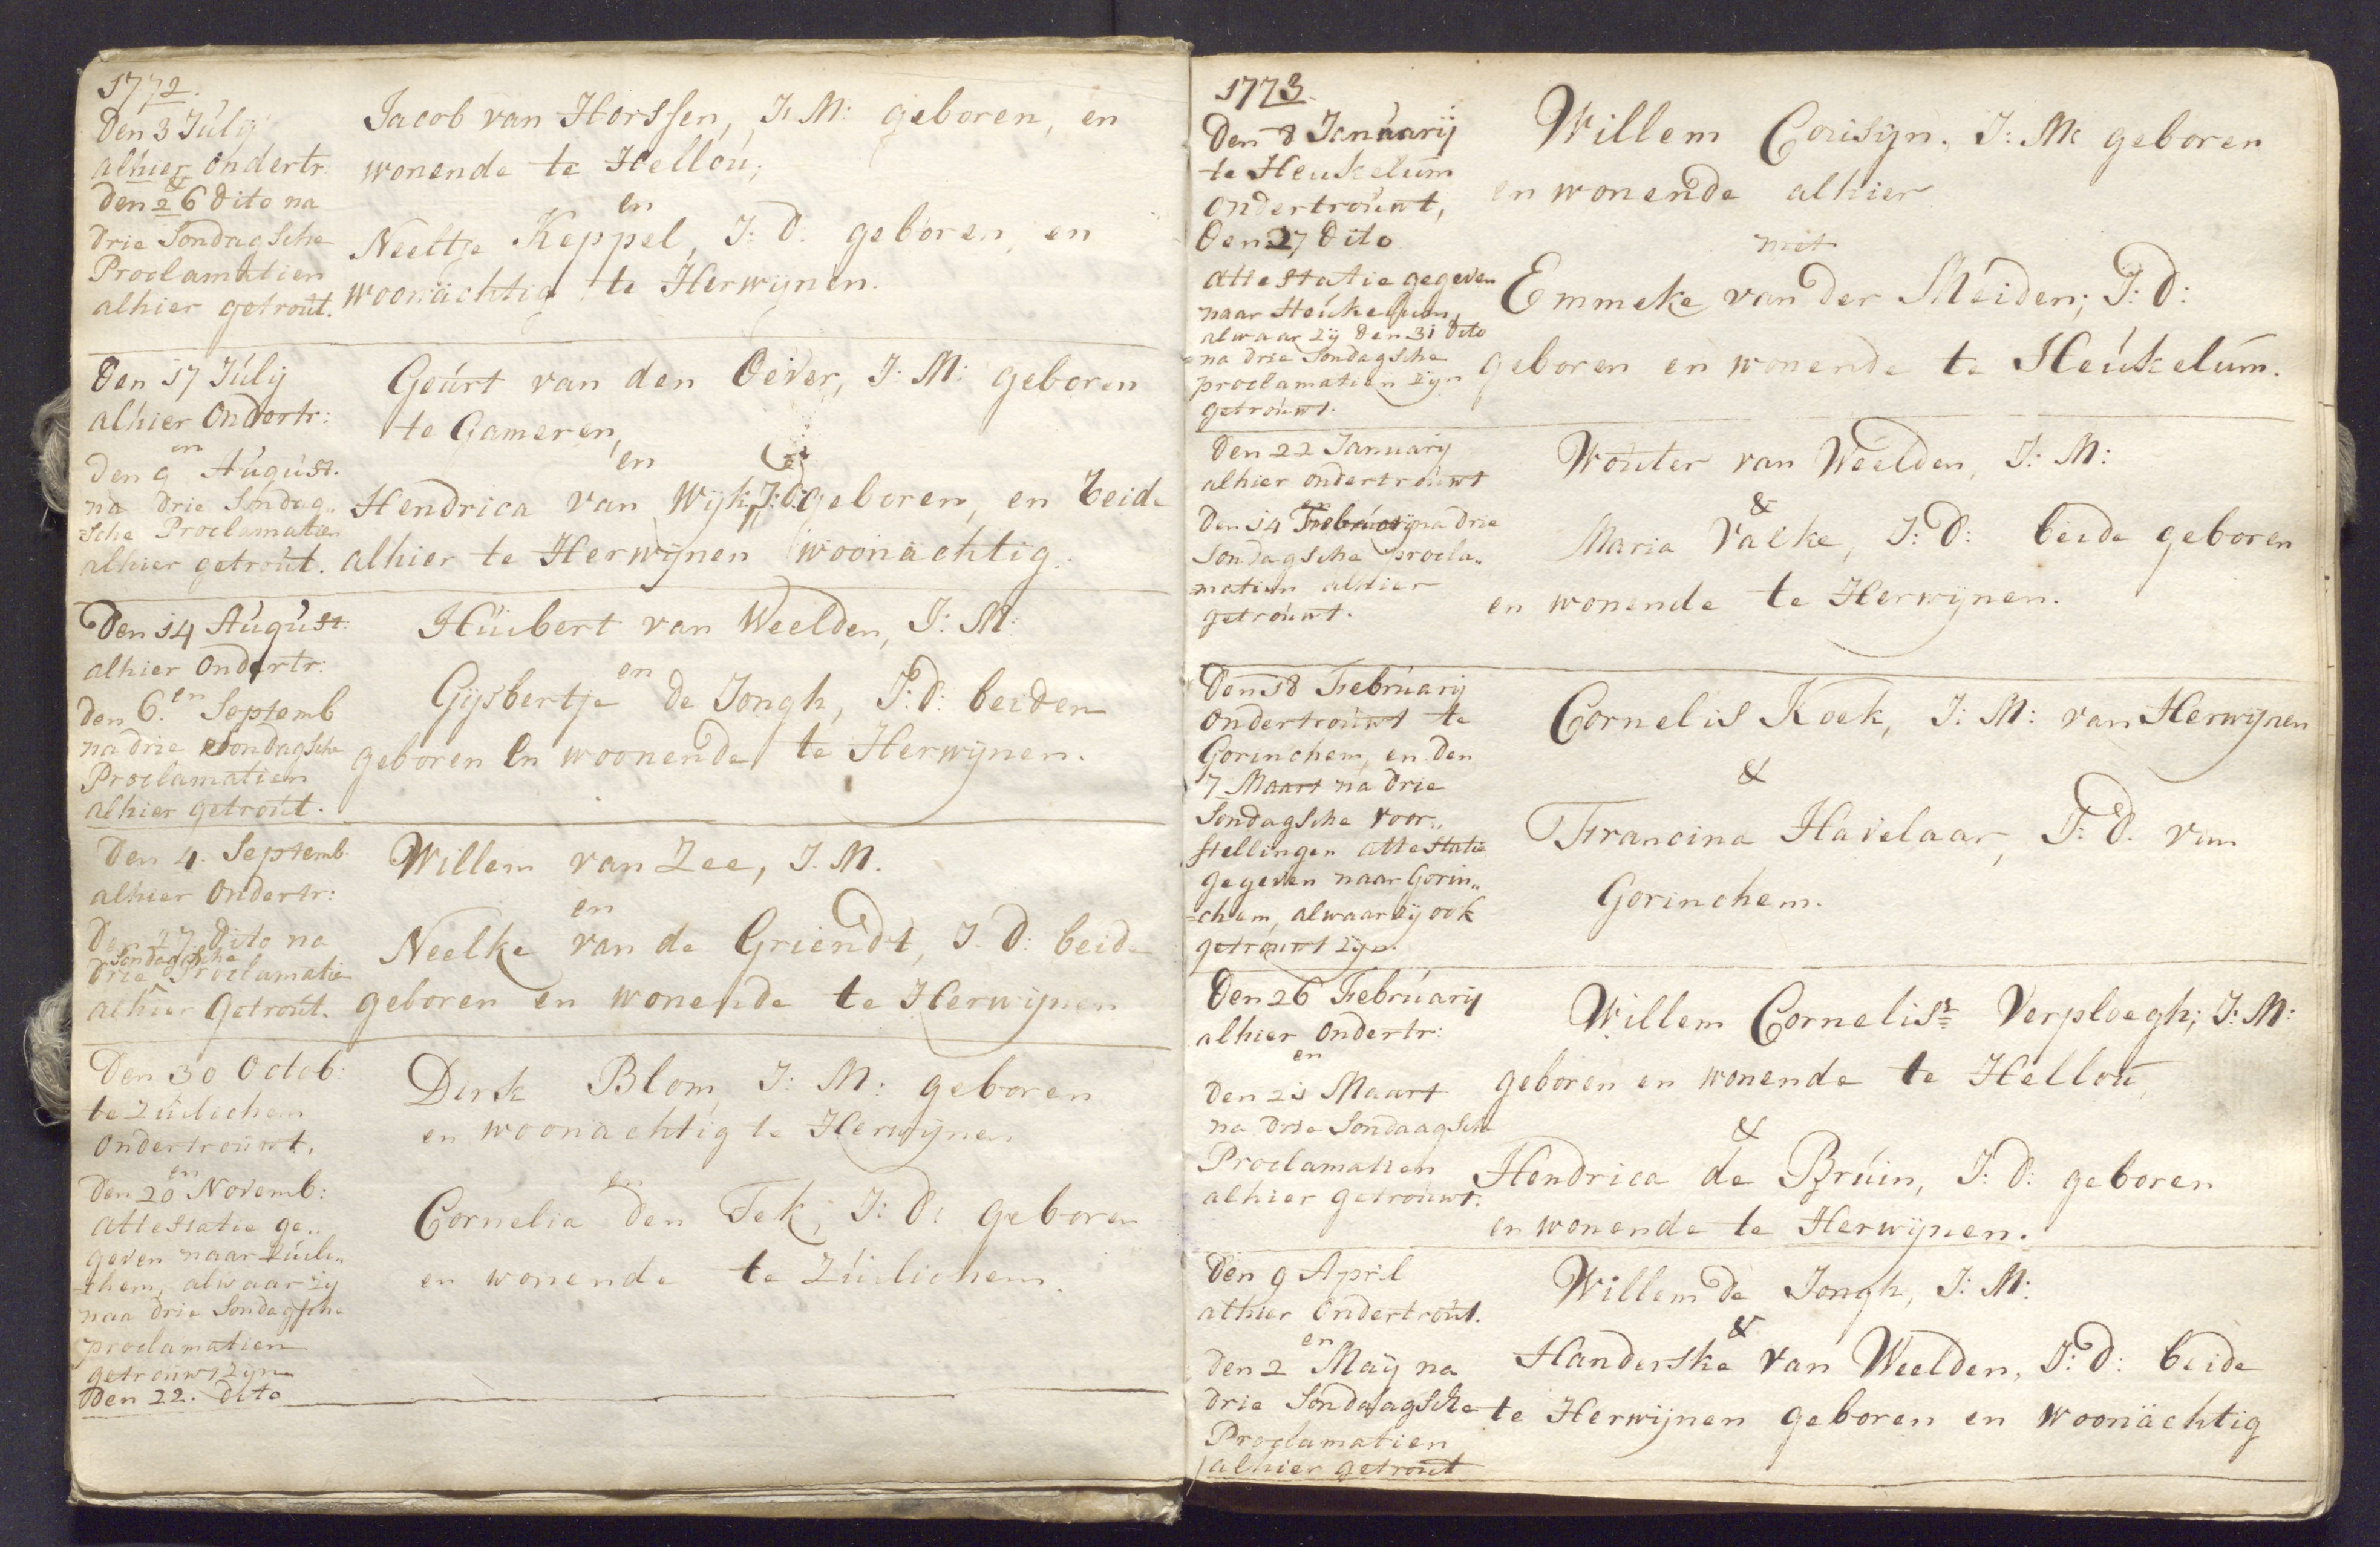 1772.
Den 3 July
alhier ondertr.
&
den 26 dito na
drie Sondagsche
Proclamatien
alhier getrout.
Jacob van Horssen, J: M: geboren, en
wonende te Hellou;
en
Neeltje Keppel, J: D. geboren, en
woonachtig te Herwijnen.
Den 17 July
alhier Ondertr:
en
den 9 August.
na drie Sondag„
=sche Proclamatien
alhier getrout.
Geurt van den Oever, J: M: geboren
te Gameren,
en
Hendrica van Wijk, J: D: geboren, en beide
alhier te Herwijnen woonachtig.
Den 14 August:
alhier Ondertr:
en
den 6. Septemb
na drie Sondagsche
Proclamatien
alhier getrout.
Huibert van Weelden, J: M:
en
Gijsbertje de Jongh, J: D: beiden
geboren en woonende te Herwijnen.
Den 4. Septemb.
alhier Ondertr:
Den 27 Dito na
Sondagsche
drie Proclamatie
alhier Getrout.
Willem van Zee, J. M.
en
Neelke van de Griendt, J. D: beide
geboren en wonende te Herwijnen
Den 30 Octob:
te Zuilichem
Ondertrouwt.
en
den 20 Novemb:
attestatie ge„
geven naar Zuili„
=chem, alwaar zij
naa drie Sondagsche
proclamatien
getrouwt zijn
den 22. dito
Dirk Blom, J: M: geboren
en woonachtig te Herwijnen
en
Cornelia den Tek, J: D: geboren
en wonende te Zuilichem.
1773.
Den 8 January
te Heukelum
ondertrouwt,
Den 27 dito
attestatie gegeven
naar Heukelum,
alwaar zij den 31 dito
na drie Sondagsche
proclamatien zijn
getrouwt.
Willem Cousijn, J: M: geboren
en wonende alhier
met
Emmeke van der Meiden; J: D:
geboren en wonende te Heukelum.
Den 22 January
alhier ondertrouwt
en
den 14 February na drie
Sondagsche procla„
matien alhier
getrouwt.
Wouter van Weelden, J: M:
&
Maria Valke, J: D: beide geboren
en wonende te Herwijnen.
Den 18 February
ondertrouwt te
Gorinchem, en den
7 Maart na drie
Sondagsche voor„
stellingen attestatie
gegeven naar Gorin„
=chem, alwaar zij ook
getrouwt zijn.
Cornelis Koek, J: M: van Herwijnen
&
Francina Havelaar, J: D. van
Gorinchem.
Den 26 February
alhier Ondertr:
en
den 21 Maart
na drie Sondaagsche
Proclamatien
alhier getrouwt.
Willem Cornelisz Verploegh; J: M:
geboren en wonende te Hellou,
&
Hendrica de Bruin, J: D: geboren
en wonende te Herwijnen.
Den 9 April
alhier Ondertrout.
en
den 2 May na
drie Sondaagsche
Proclamatien
alhier getrout
Willem de Jongh, J: M:
&
Handerske van Weelden, J: D: beide
te Herwijnen geboren en woonachtig